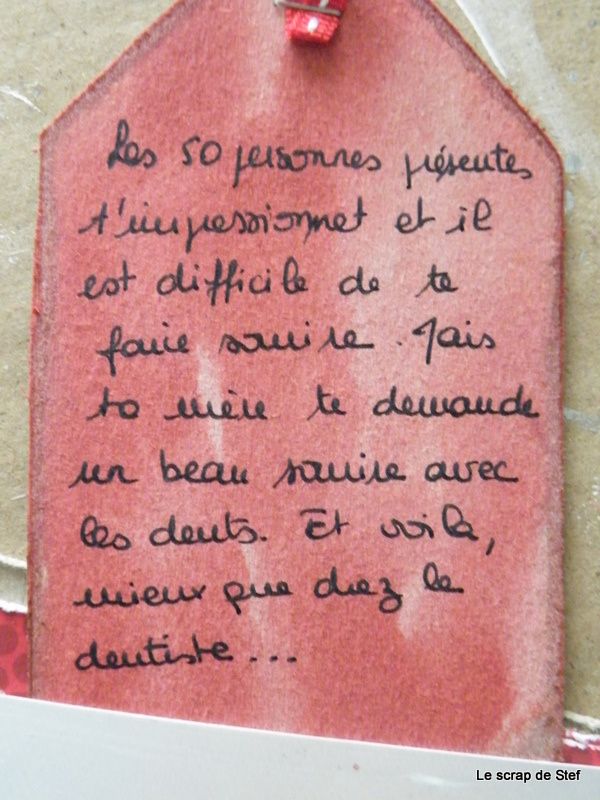 Les 50 personnes présentes
t'impressionnet et il
est difficile de te
faire sourire. Mais
ta mère te demande
un beau sourire avec
les dents. Et voila,
mieux que chez le
dentiste...
Le scrap de Stef